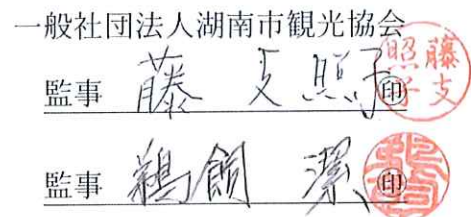 一般社団法人湖南市観光協会
監事 藤支照子 ㊞
監事 鵜飼 潔 ㊞